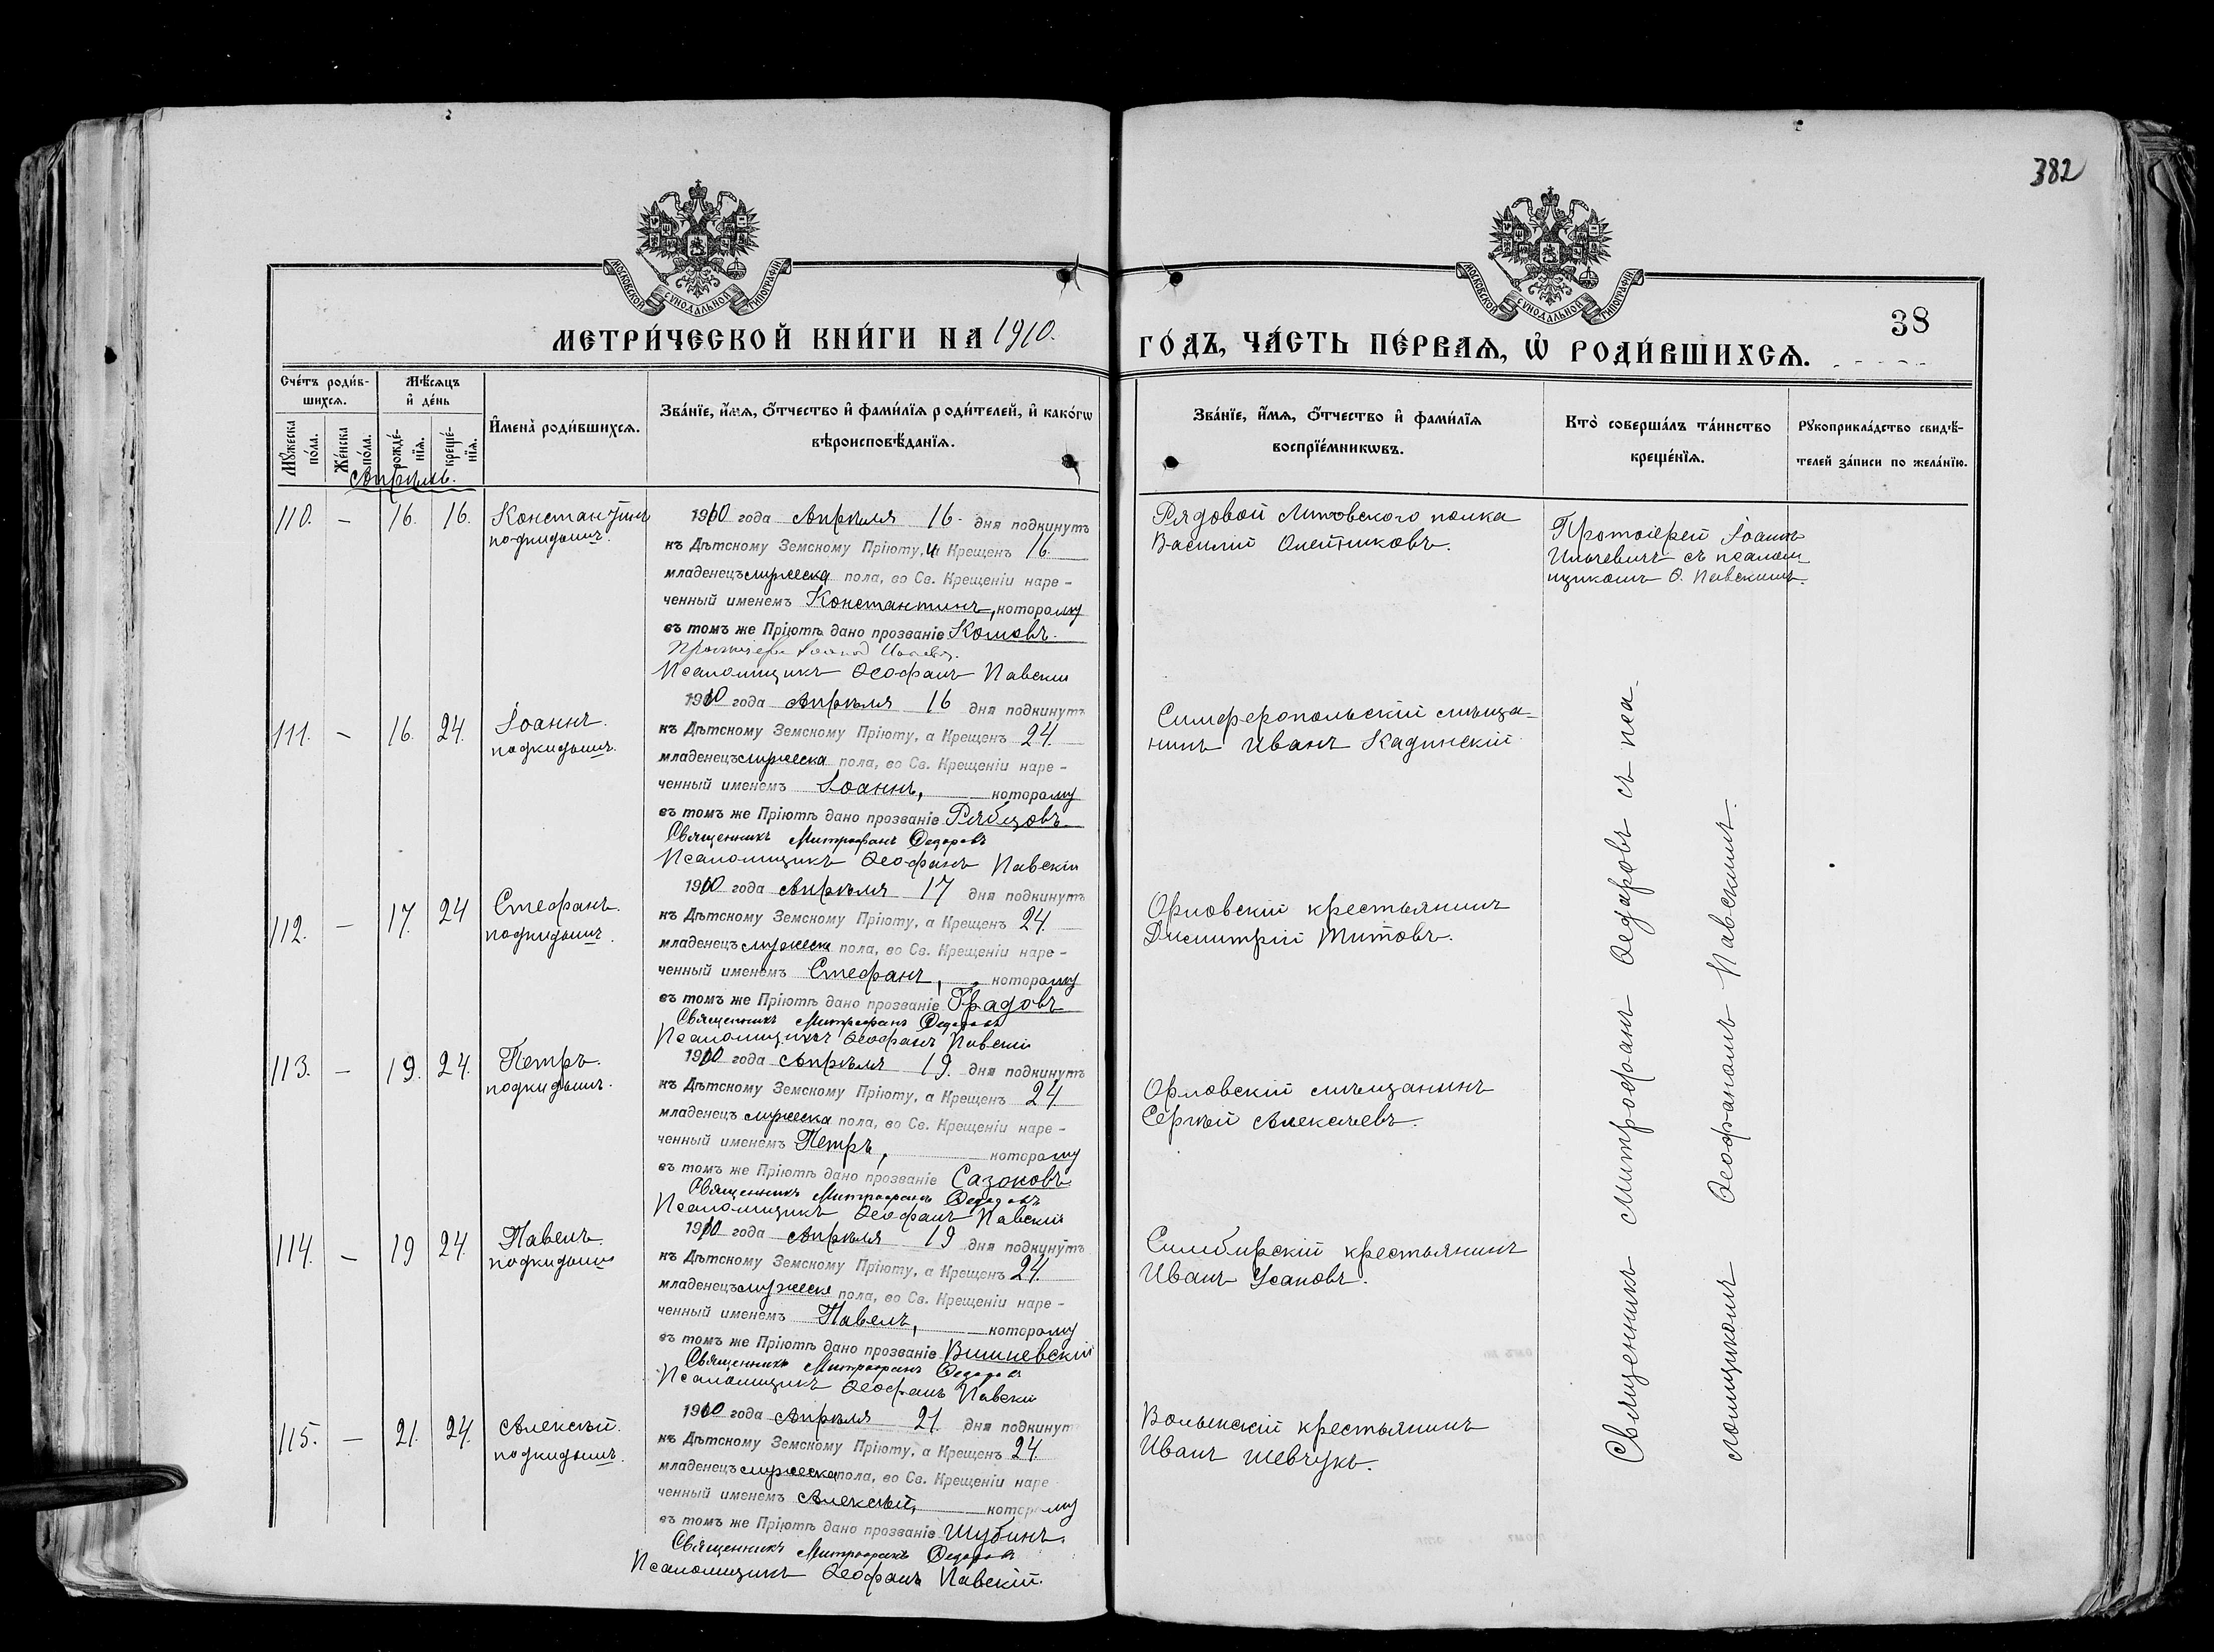 382
МОСКОВСКОЙ СУНОДАЛЬНОЙ ТИПОГРАФІИ
МОСКОВСКОЙ СУНОДАЛЬНОЙ ТИПОГРАФІИ
38
МЕТРИ́ЧЕСКОЙ КНИ́ГИ НА 1910.
ГО́ДЪ, ЧА́СТЬ ПЕ́РВАѦ, Ѡ҆ РОДИ́ВШИХСѦ.
Сче́тъ роди́в-
шихсѧ.
Мѣ́сѧцъ
и҆ де́нь
Мꙋ́жеска
по́ла.
Же́нска
по́ла.
рожде́-
нїѧ.
креще́-
нїѧ.
И҆мена̀ роди́вшихсѧ.
Зва́нїе, и҆́мѧ, ѻ҆́тчество и҆ фами́лїѧ роди́телей, и҆ како́гѡ
вѣроисповѣ́данїѧ.
Зва́нїе, и҆́мѧ, ѻ҆́тчество и҆ фами́лїѧ
воспрїе́мникѡвъ.
Кто̀ соверша́лъ та́инство
креще́нїѧ.
Рꙋкоприкла́дство свидѣ́-
телей за́писи по жела́нїю.
Апрѣль.
110. — 16. 16. Константинъ
подкидышъ.
1910 года Апрѣля 16. дня подкинутъ
къ Дѣтскому Земскому Пріюту, и Крещенъ 16.
младенецъ мужеска пола, во Св. Крещеніи наре-
ченный именемъ Константинъ, которому
въ томъ же Пріютѣ дано прозваніе Комовъ.
Протоіерей Іоаннъ
Псаломщикъ Ѳеофанъ Павскій
Рядовой Литовского полка
Василій Олейниковъ.
Протоіерей Іоаннъ
Ильчевичъ съ псалом-
щикомъ Ѳ. Павскимъ.
111. — 16. 24. Іоаннъ.
подкидышъ.
1910 года Апрѣля 16 дня подкинутъ
къ Дѣтскому Земскому Пріюту, а Крещенъ 24.
младенецъ мужеска пола, во Св. Крещеніи наре-
ченный именемъ Іоаннъ, которому
въ томъ же Пріютѣ дано прозваніе Рябцовъ
Священникъ Митрофанъ Ѳедоровъ
Псаломщикъ Ѳеофанъ Павскій
Симферопольскій мѣща-
нинъ Иванъ Кадинскій
112. — 17. 24 Стефанъ.
подкидышъ.
1910 года Апрѣля 17 дня подкинутъ
къ Дѣтскому Земскому Пріюту, а Крещенъ 24.
младенецъ мужеска пола, во Св. Крещеніи наре-
ченный именемъ Стефанъ, которому
въ томъ же Пріютѣ дано прозваніе Градовъ
Священникъ Митрофанъ Ѳедоровъ
Псаломщикъ Ѳеофанъ Павскій
Орловскій крестьянинъ
Димитрій Титовъ.
113. — 19. 24. Петръ.
подкидышъ.
1910 года Апрѣля 19. дня подкинутъ
къ Дѣтскому Земскому Пріюту, а Крещенъ 24.
младенецъ мужеска пола, во Св. Крещеніи наре-
ченный именемъ Петръ, которому
въ томъ же Пріютѣ дано прозваніе Сазоновъ
Священникъ Митрофанъ Ѳедоровъ
Псаломщикъ Ѳеофанъ Павскій
Орловскій мѣщанинъ
Сергѣй Алексѣевъ.
114. — 19 24. Павелъ.
подкидышъ
1910 года Апрѣля 19 дня подкинутъ
къ Дѣтскому Земскому Пріюту, а Крещенъ 24.
младенецъ мужеска пола, во Св. Крещеніи наре-
ченный именемъ Павелъ, которому
въ томъ же Пріютѣ дано прозваніе Вишневскій
Священникъ Митрофанъ Ѳедоровъ
Псаломщикъ Ѳеофанъ Павскій
Симбирскій крестьянинъ
Иванъ Усановъ.
115. — 21. 24. Алексѣй.
подкидышъ.
1910 года Апрѣля 21. дня подкинутъ
къ Дѣтскому Земскому Пріюту, а Крещенъ 24.
младенецъ мужеска пола, во Св. Крещеніи наре
ченный именемъ Алексѣй, которому
въ томъ же Пріютѣ дано прозваніе Шубинъ.
Священникъ Митрофанъ Ѳедоровъ
Псаломщикъ Ѳеофанъ Павскій.
Волынскій крестьянинъ
Иванъ Шевчукъ.
Священникъ Митрофанъ Ѳедоровъ съ пса-
ломщикомъ Ѳеофаномъ Павскимъ.